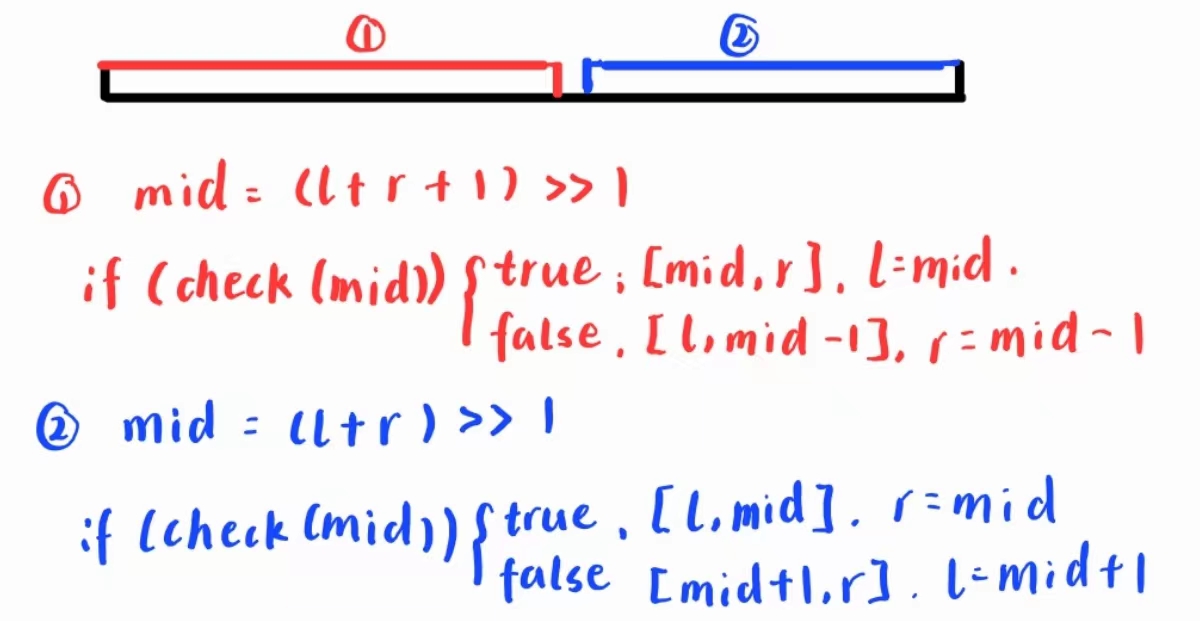 ① ②
① mid = (l + r + 1) >> 1
if (check (mid)) { true ; [mid, r]. l=mid.
false. [l, mid -1]. r = mid - 1
② mid = (l+r) >> 1
if (check (mid)) { true . [l, mid]. r = mid
false [mid+1, r]. l=mid+1